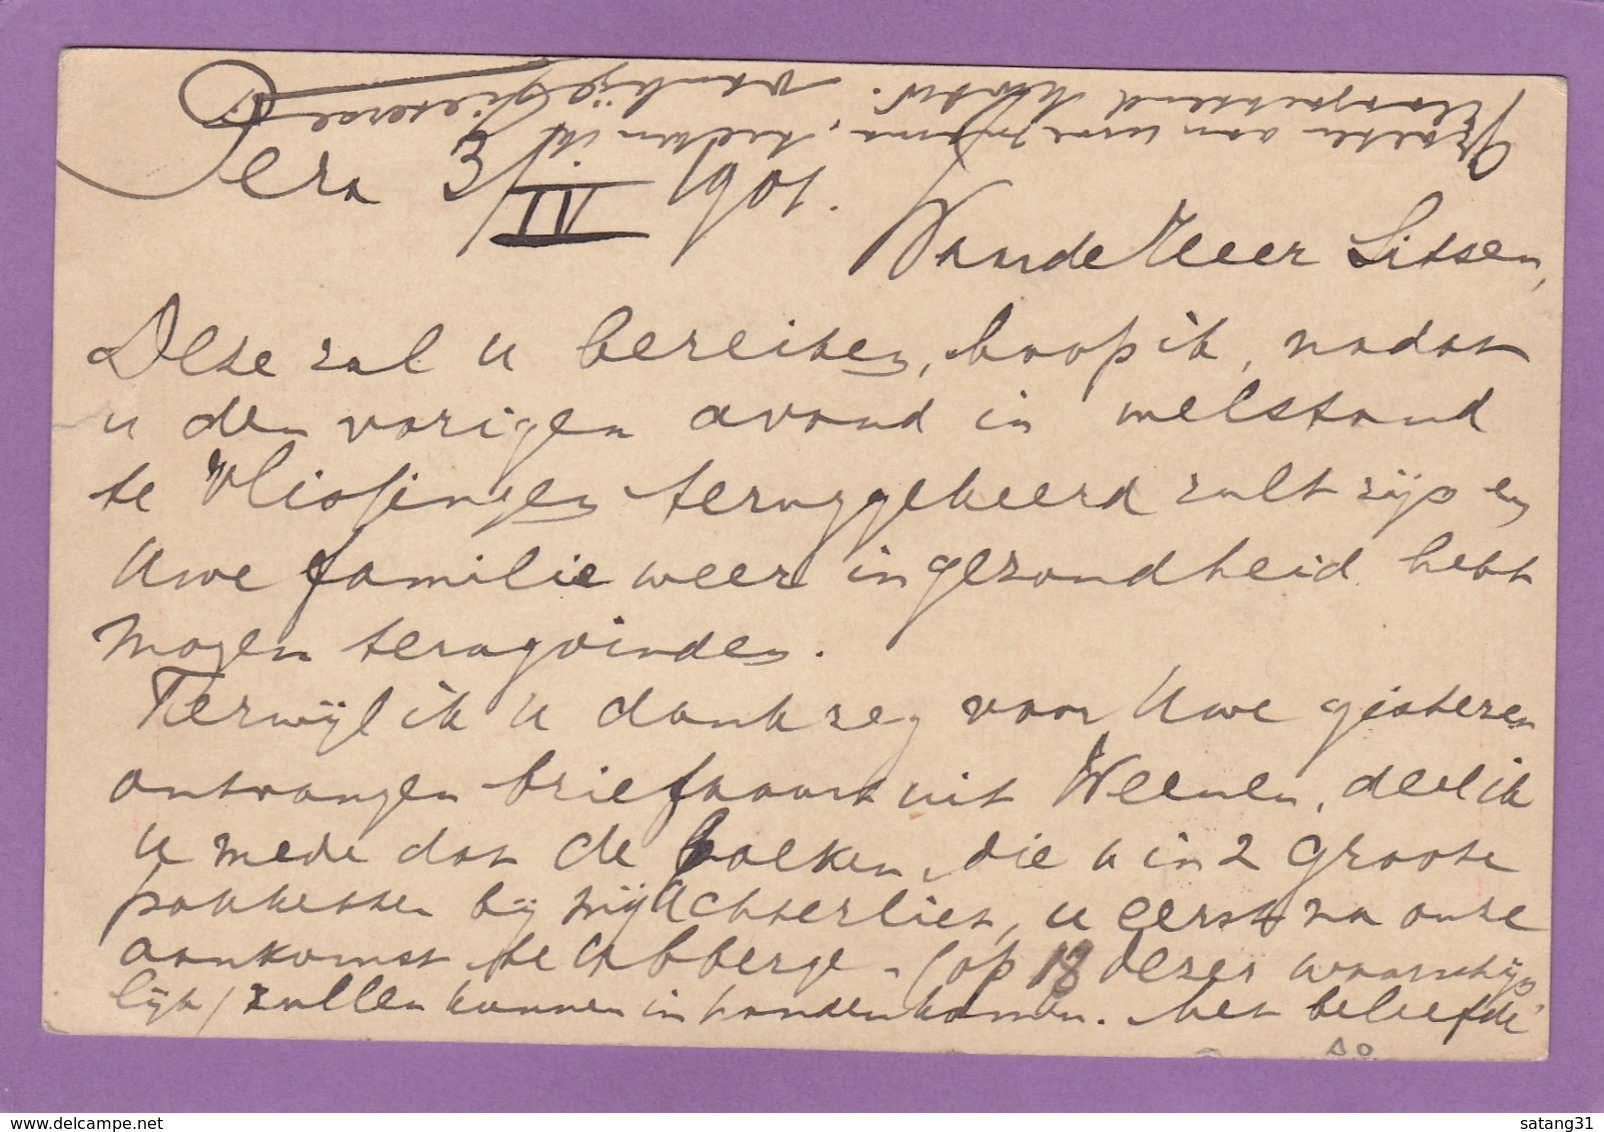 Pera 3/IV 1901.
Waarde Heer Litsen,
Deze zal u bereiken, hoop ik, nadat
u den vorigen avond in welstand
te Vlissingen teruggekeerd zult zijn en
Uwe familie weer in gezondheid hebt
mogen terugvinden.
Terwijl ik u dank zeg voor Uwe gisteren
ontvangen briefkaart uit Weenen, deel ik
u mede dat de boeken, die u in 2 groote
pakketten bij mij achterliet, u eerst na onze
aankomst te Abberge - (op 18 dezer waarschijn
lijk) zullen kunnen in handen komen. Met beleefde
groeten aan uwe mama, teeken ik
Hoogachtend
satang31